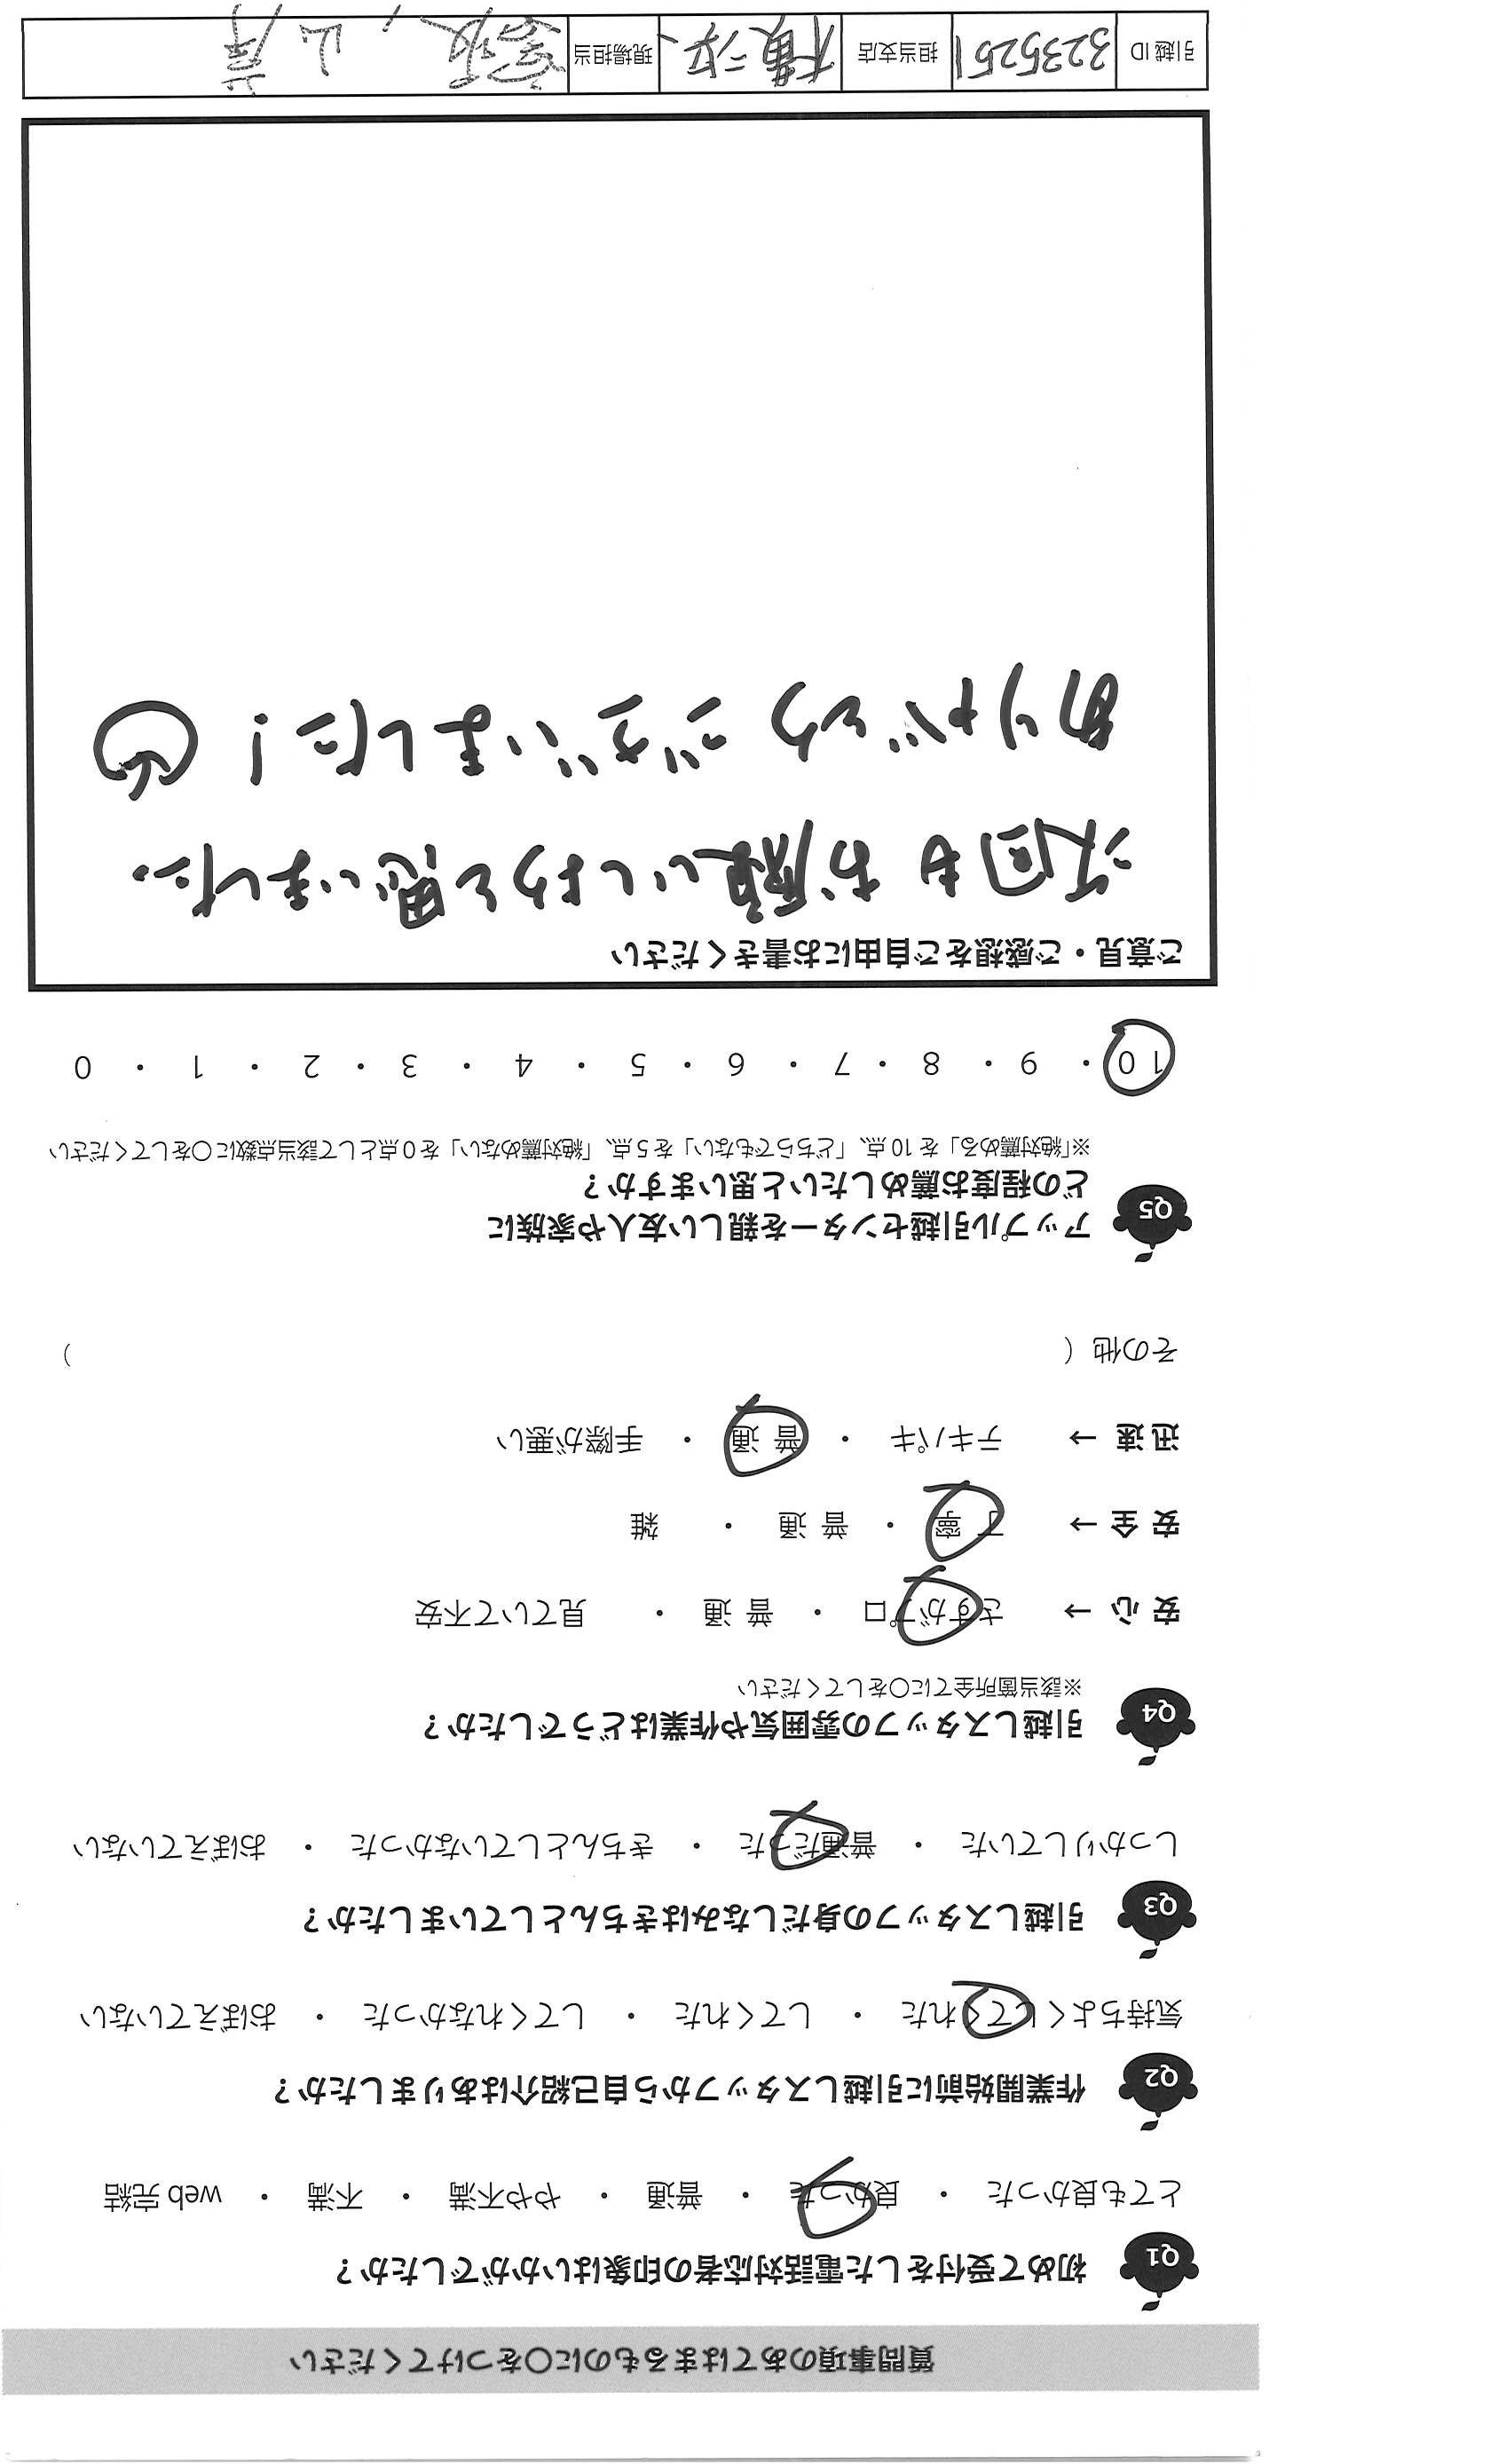 質問事項のあてはまるものに〇をつけてください
Q1 初めて受付をした電話対応者の印象はいかがでしたか？
とても良かった ・ 良かった ・ 普通 ・ やや不満 ・ 不満 ・ web 完結
Q2 作業開始前に引越しスタッフから自己紹介はありましたか？
気持ちよくしてくれた ・ してくれた ・ してくれなかった ・ おぼえていない
Q3 引越しスタッフの身だしなみはきちんとしていましたか？
しっかりしていた ・ 普通だった ・ きちんとしていなかった ・ おぼえていない
Q4 引越しスタッフの雰囲気や作業はどうでしたか？
※該当箇所全てに〇をしてください
安 心 → さすがプロ ・ 普 通 ・ 見ていて不安
安 全 → 丁 寧 ・ 普 通 ・ 雑
迅 速 → テキパキ ・ 普 通 ・ 手際が悪い
その他（ ）
Q5 アップル引越センターを親しい友人や家族に
どの程度お薦めしたいと思いますか？
※「絶対薦める」を 10 点、「どちらでもない」を 5 点、「絶対薦めない」を 0 点として該当点数に〇をしてください
10 ・ 9 ・ 8 ・ 7 ・ 6 ・ 5 ・ 4 ・ 3 ・ 2 ・ 1 ・ 0
ご意見・ご感想をご自由にお書きください
次回もお願いしようと思いました。
ありがとうございました！
引越 ID 3235251 担当支店 横浜 現場担当 山岸